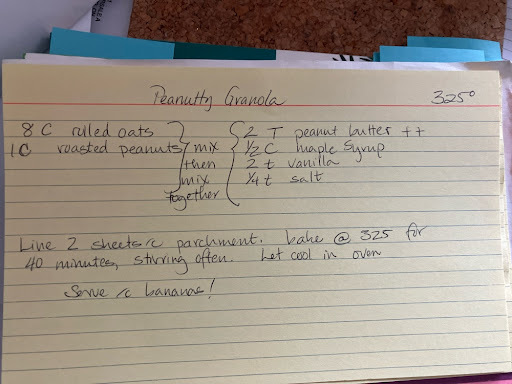 Peanutty Granola 325°
8 C rulled oats } { 2 T peanut butter ++
1 C roasted peanuts } mix { 1/2 C maple Syrup
then { 2 t vanilla
mix { 1/4 t salt
together
Line 2 sheets c parchment. bake @ 325 for
40 minutes, stirring often. Let cool in oven
Serve c bananas!